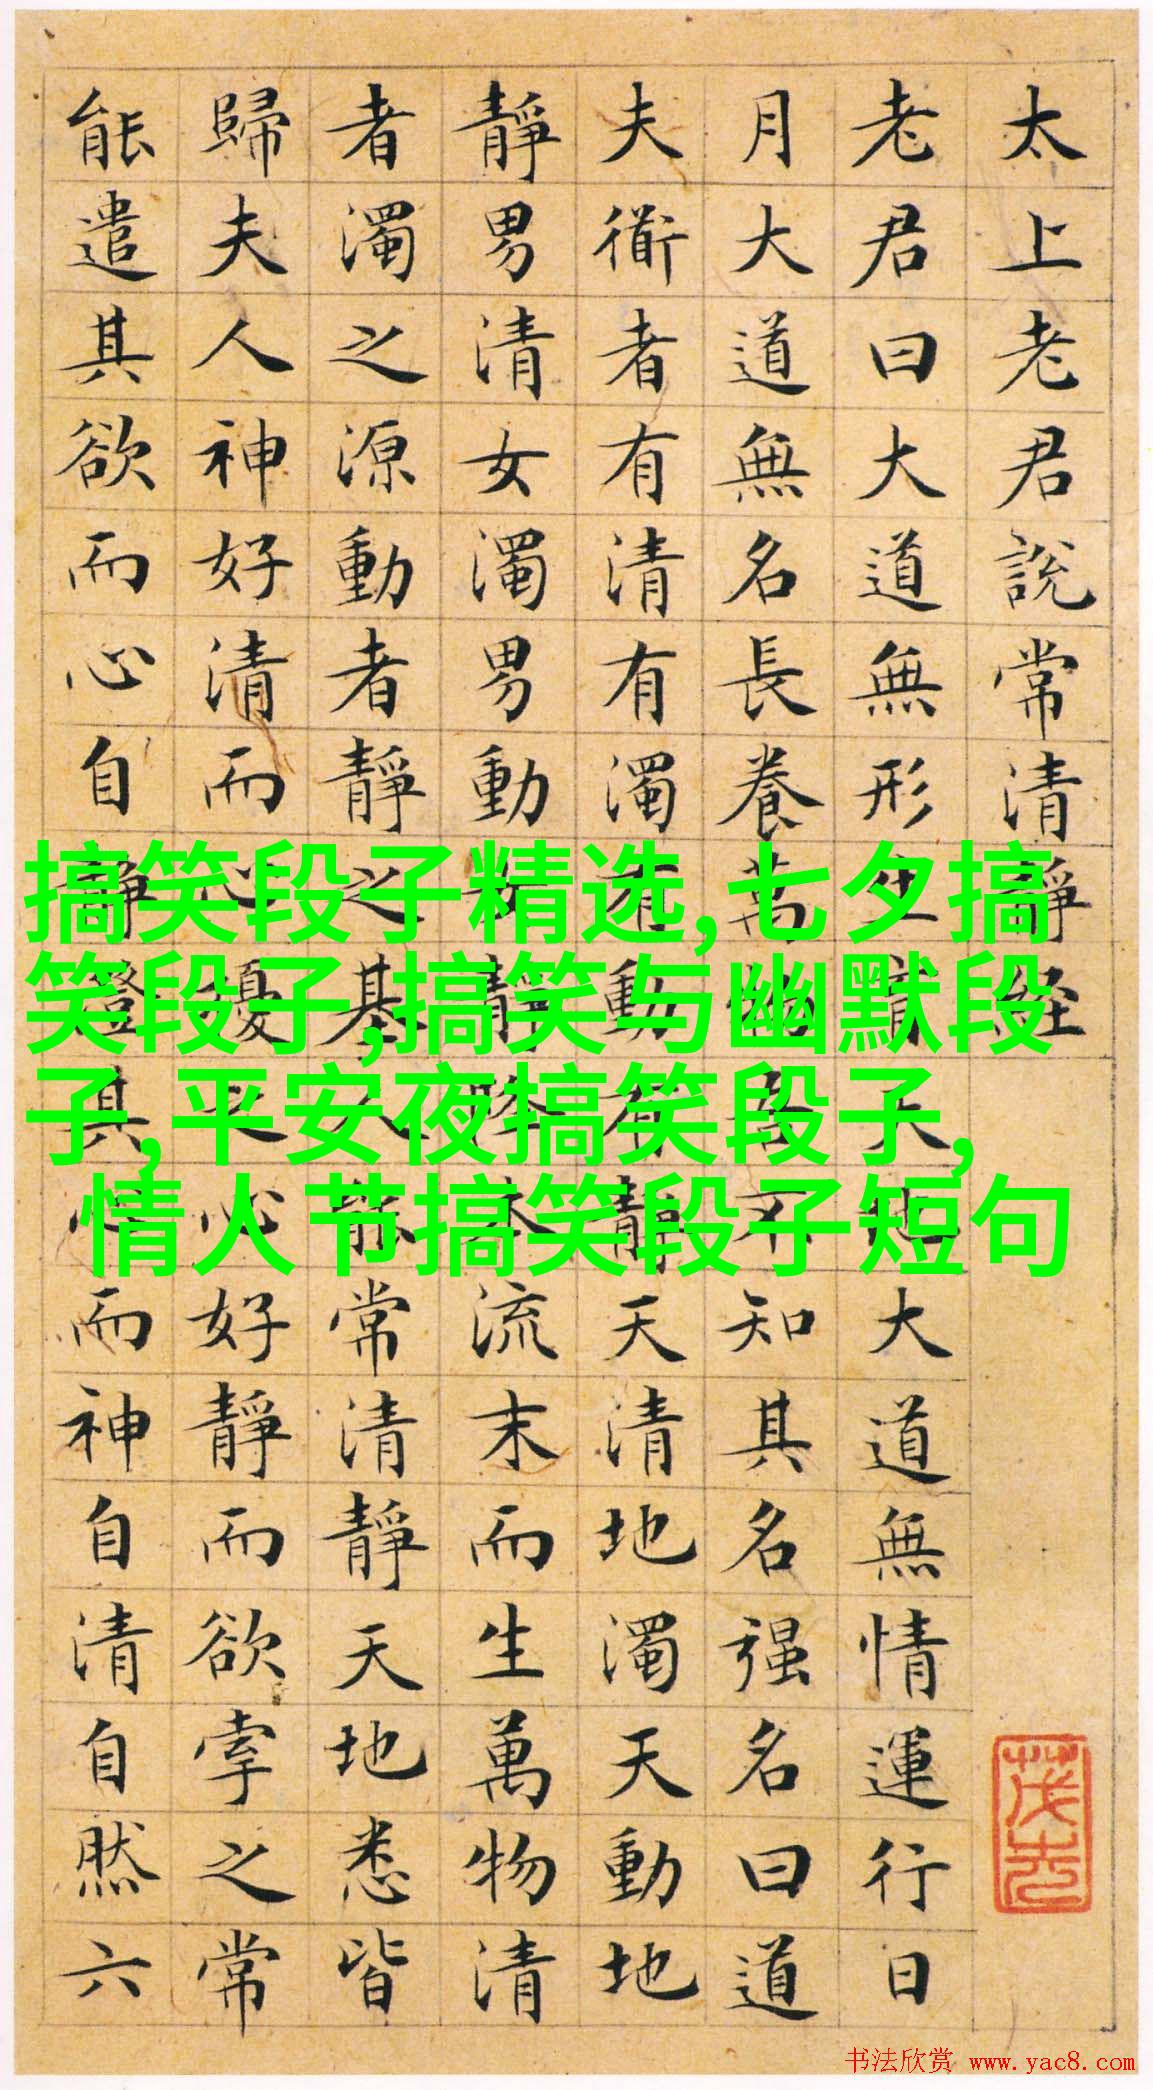 太上老君說常清靜経
老君曰大道無形生育天地大道無情運行日
月大道無名長養萬物吾不知其名强名曰道
夫衜者有清有濁有動有靜天清地濁天動地
靜男清女濁男動女靜降本流末而生萬物清
者濁之源動者靜之基人能常清靜天地悉皆
歸夫人神好清而心擾之心好靜而欲牽之常
能遣其欲而心自靜澄其心而神自清自然六
搞笑段子精选,七夕搞
笑段子,搞笑与幽默段
子,平安夜搞笑段子,
情人节搞笑段子短句
书法欣赏 www.yac8.com